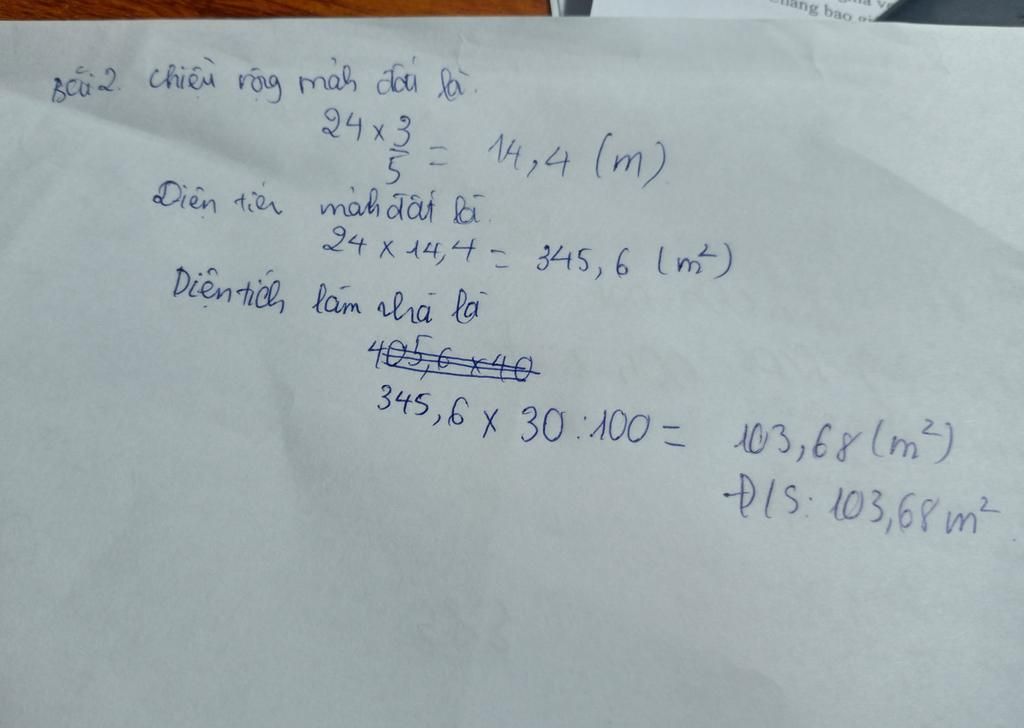 Bài 2. Chiều rộng mảnh đất là.
24 × 3/5 = 14,4 (m)
Diện tích mảnh đất là.
24 × 14,4 = 345,6 (m²)
Diện tích làm nhà là
405,6 × 40
345,6 × 30 : 100 = 103,68 (m²)
Đ/S: 103,68 m²